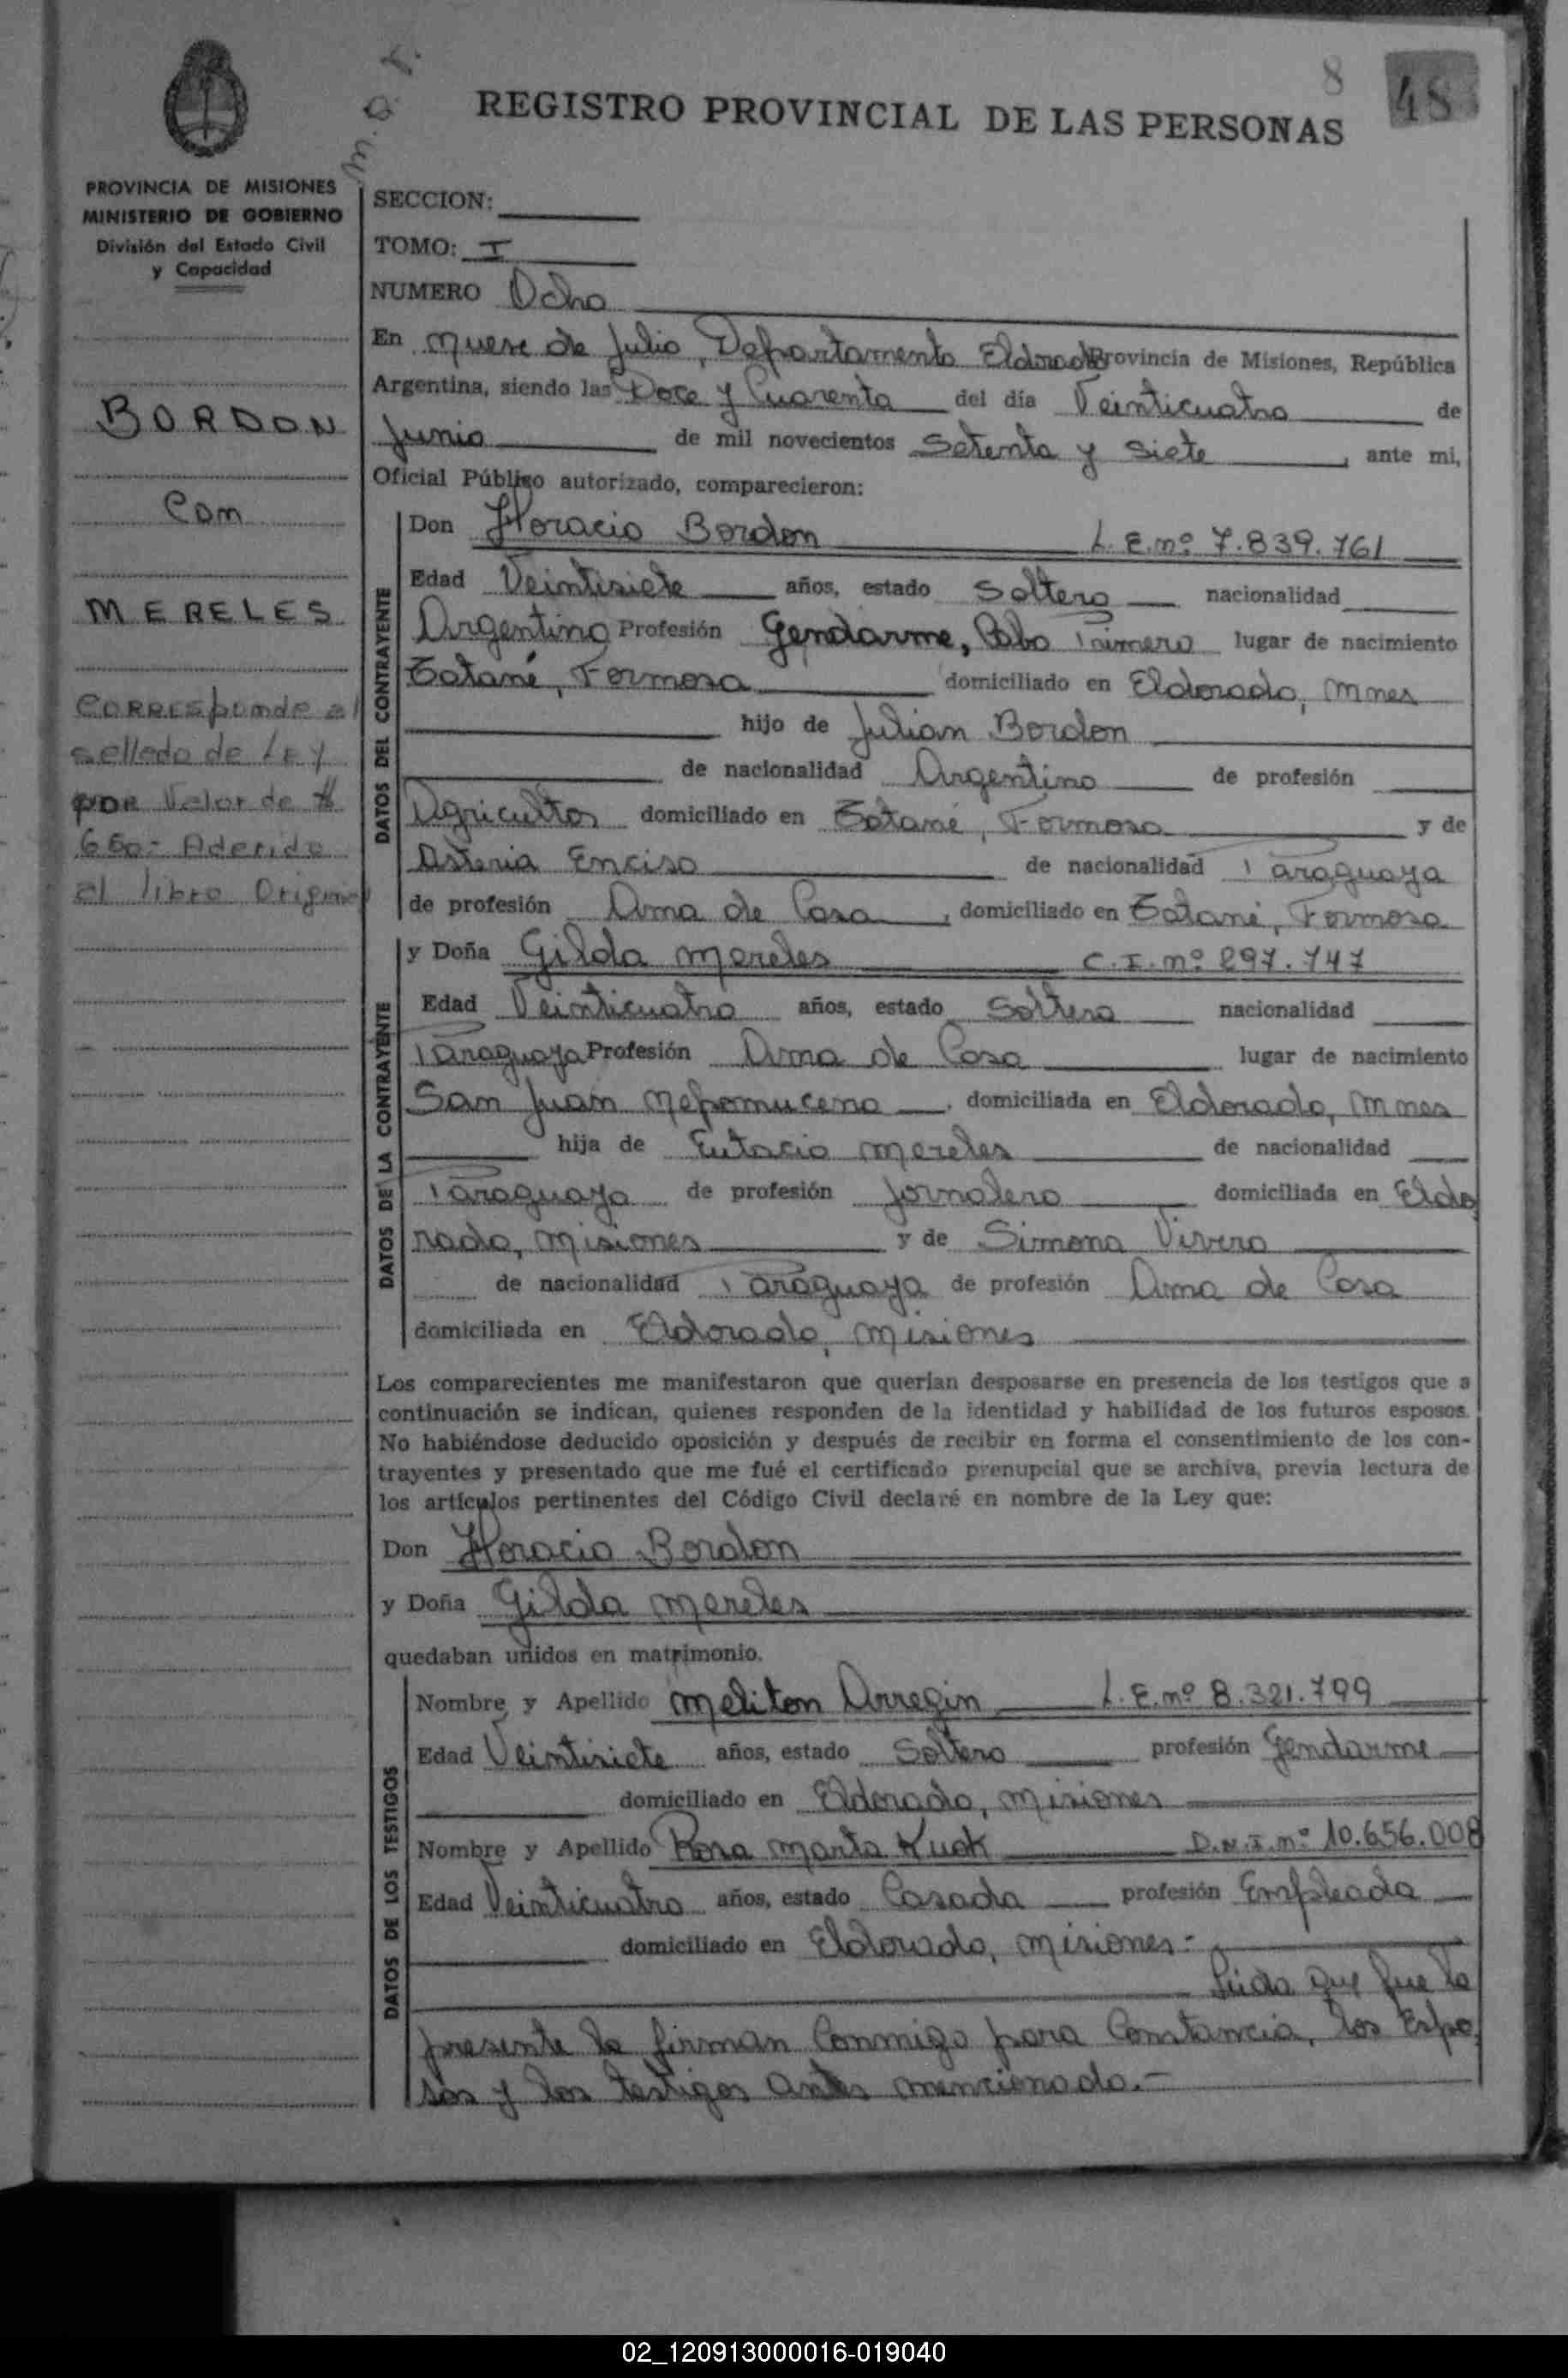 8
48
REGISTRO PROVINCIAL DE LAS PERSONAS
PROVINCIA DE MISIONES
MINISTERIO DE GOBIERNO
División del Estado Civil
y Capacidad
SECCION:
TOMO: I
NUMERO Ocho
En Nueve de Julio, Departamento Eldorado Provincia de Misiones, República
Argentina, siendo las Doce y Cuarenta del día Veinticuatro de
Junio de mil novecientos Setenta y Siete, ante mi,
Oficial Público autorizado, comparecieron:
BORDON
Con
MERELES
Corresponde al
sellado de LEY
por Valor de $
650.- Aderido
al libro Original
DATOS DEL CONTRAYENTE
Don Horacio Bordon L.E.nº 7.839.761
Edad Veintisiete años, estado Soltero nacionalidad
Argentino Profesión Gendarme, Cabo Primero lugar de nacimiento
Zatané, Formosa domiciliado en Eldorado, Mnes
hijo de Julian Bordon
de nacionalidad Argentino de profesión
Agricultor domiciliado en Zatané, Formosa y de
Asteria Enciso de nacionalidad Paraguaya
de profesión Ama de Casa, domiciliado en Zatané, Formosa
DATOS DE LA CONTRAYENTE
y Doña Gilda Mereles C.I.nº 297.747
Edad Veinticuatro años, estado Soltera nacionalidad
Paraguaya Profesión Ama de Casa lugar de nacimiento
San Juan Nepomuceno, domiciliada en Eldorado, Mnes
hija de Eutacio Mereles de nacionalidad
Paraguayo de profesión Jornalero domiciliada en Eldo
rado, Misiones y de Simona Vivero
de nacionalidad Paraguaya de profesión Ama de Casa
domiciliada en Eldorado, Misiones
Los comparecientes me manifestaron que querían desposarse en presencia de los testigos que a
continuación se indican, quienes responden de la identidad y habilidad de los futuros esposos.
No habiéndose deducido oposición y después de recibir en forma el consentimiento de los con-
trayentes y presentado que me fué el certificado prenupcial que se archiva, previa lectura de
los artículos pertinentes del Código Civil declaré en nombre de la Ley que:
Don Horacio Bordon
y Doña Gilda Mereles
quedaban unidos en matrimonio.
DATOS DE LOS TESTIGOS
Nombre y Apellido Meliton Arregin L.E.nº 8.321.799
Edad Veintisiete años, estado Soltero profesión Gendarme
domiciliado en Eldorado, Misiones
Nombre y Apellido Rosa Marta Kuok D.N.I.nº 10.656.008
Edad Veinticuatro años, estado Casada profesión Empleada
domiciliado en Eldorado, Misiones.-
Leida que fue la
presente la firman Conmigo para Constancia, los Espo
sos y los testigos antes mencionado.-
02_120913000016-019040